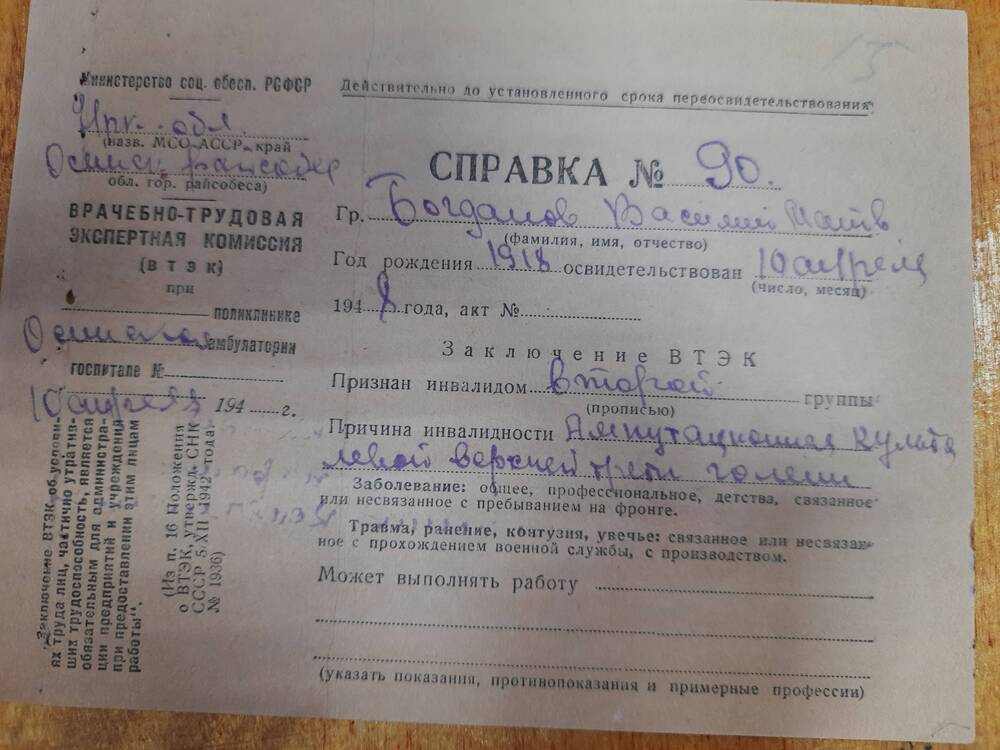 15
Министерство соц. обесп. РСФСР
Ирк. обл.
(назв. МСО АССР край
Осинск. райсобес
обл. гор. райсобеса)
ВРАЧЕБНО-ТРУДОВАЯ
ЭКСПЕРТНАЯ КОМИССИЯ
(ВТЭК)
при
поликлинике
Осинская амбулатории
госпитале №
10 апреля 194 г.
„Заключение ВТЭК об услови-
ях труда лиц, частично утратив-
ших трудоспособность, является
обязательным для администра-
ции предприятий и учреждений
при предоставлении этим лицам
работы“.
(Из п. 16 Положения
о ВТЭК, утвержд. СНК
СССР 5/XII 1942 года.
№ 1936)
Действительно до установленного срока переосвидетельствования
СПРАВКА № 90.
Гр. Богданов Василий Матв
(фамилия, имя, отчество)
Год рождения 1918 освидетельствован 10 апреля
(число, месяц)
1948 года, акт №
Заключение ВТЭК
Признан инвалидом второй группы
(прописью)
Причина инвалидности Ампутационная культя
левой верхней трети голени
Заболевание: общее, профессиональное, детства, связанное
или несвязанное с пребыванием на фронте.
Травма, ранение, контузия, увечье: связанное или несвязан-
ное с прохождением военной службы, с производством.
Может выполнять работу
(указать показания, противопоказания и примерные профессии)